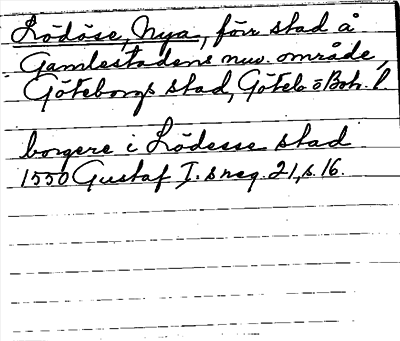 Lödöse, Nya, förr stad å
Gamlestadens nuv. område,
Göteborgs stad, Göteb o Boh. l.
borgere i Lödesse stad
1550 Gustaf I:s reg. 21, s. 16.